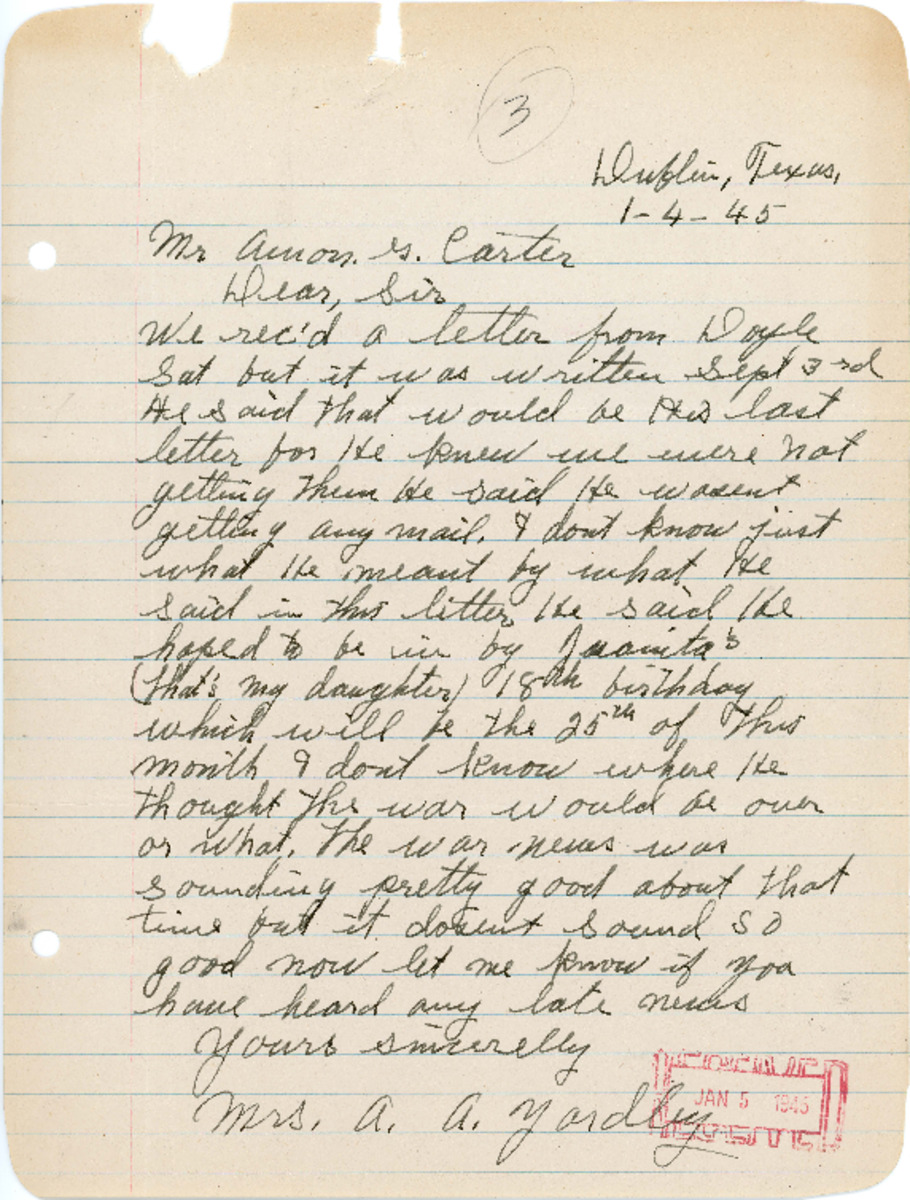 3
Dublin, Texas,
1-4-45
Mr Amon. G. Carter
Dear, Sir
We rec'd a letter from Doyle
Sat but it was written Sept 3rd
He said that would be His last
letter for He knew we were not
getting them He said He wasent
getting any mail. I dont know just
what He meant by what He
said in this letter He said He
hoped to be in by Juanita's
(that's my daughter) 18th birthday
which will be the 25th of this
month I dont know where He
thought the war would be over
or what. The war news was
sounding pretty good about that
time but it dosent sound so
good now let me know if you
have heard any late news
Yours sincerelly
Mrs. A. A. Yardley
JAN 5 1945